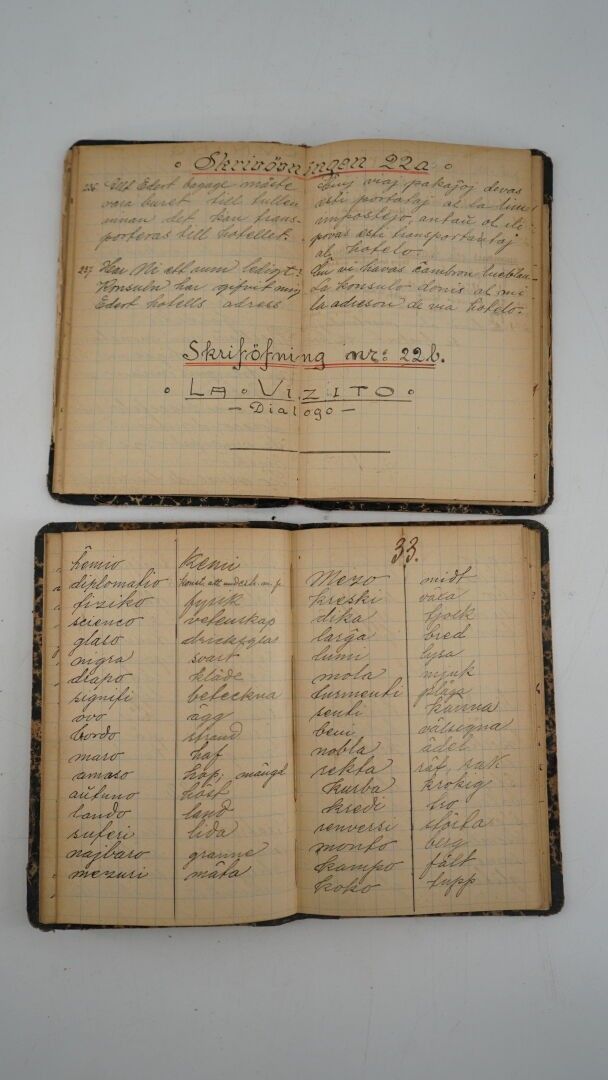 Skrifövningen 22a
236. Allt Edert bagage måste
vara buret till tullen
innan det kan trans-
porteras till hotellet.
237. Har Ni ett rum ledigt?
Konsuln har gifvit mig
Edert hotells adress
viaj pakaĵoj devas
esti portataj al la lim-
impostejo, antaŭ ol ili
povas esti transportataj
al hotelo.
Ĉu vi havas ĉambron
La konsulo donis al mi
la adreson de via hotelo.
Skriföfning nr: 22b.
LA VIZITO
- Dialogo -
ĥemio kemi
diplomatio
fiziko fysik
scienco vetenskap
glaso dricksglas
nigra svart
drapo kläde
signifi beteckna
ovo ägg
bordo strand
maro haf
amaso hop, mängd
aŭtuno höst
lando land
suferi lida
najbaro granne
mezuri mäta
33.
Mezo midt
kreski växa
dika tjock
larĝa bred
lumi lysa
mola mjuk
turmenti plåga
senti känna
beni välsigna
nobla ädel
rekta rät, rak
kurba krokig
kredi tro
renversi störta
monto berg
kampo fält
koko tupp